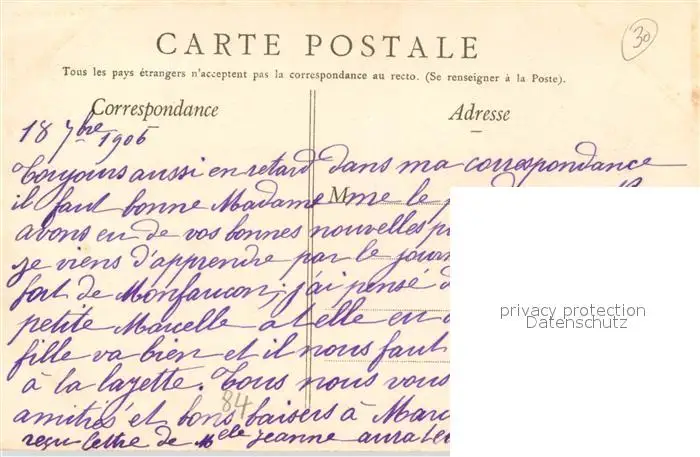 30
CARTE POSTALE
Tous les pays étrangers n'acceptent pas la correspondance au recto. (Se renseigner à la Poste).
Correspondance
Adresse
18 7bre 1906
Toujours aussi en retard dans ma correspondance
il faut bonne Madame M me le
avons eu de vos bonnes nouvelles
je viens d'apprendre par le jour
fort de Monfaucon, j'ai pensé
petite Marcelle a t elle eu
fille va bien et il nous faut
à la layette. Tous nous vous
84
amitiés et bons baisers à Marc
reçu lettre de Melle jeanne
privacy protection
Datenschutz